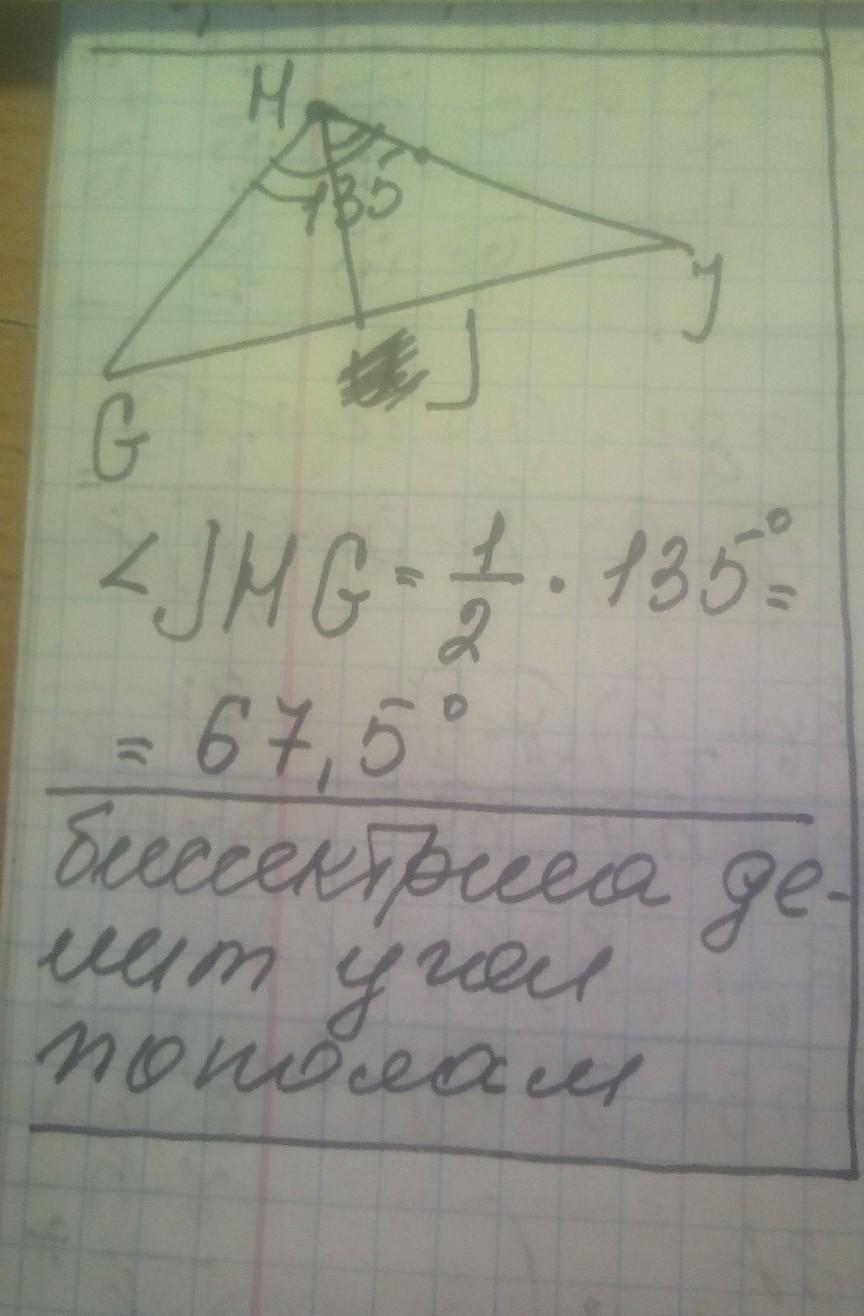 H
135
y
J
G
<JHG = 1/2 · 135° =
= 67,5°
биссектриса де-
лит угол
пополам